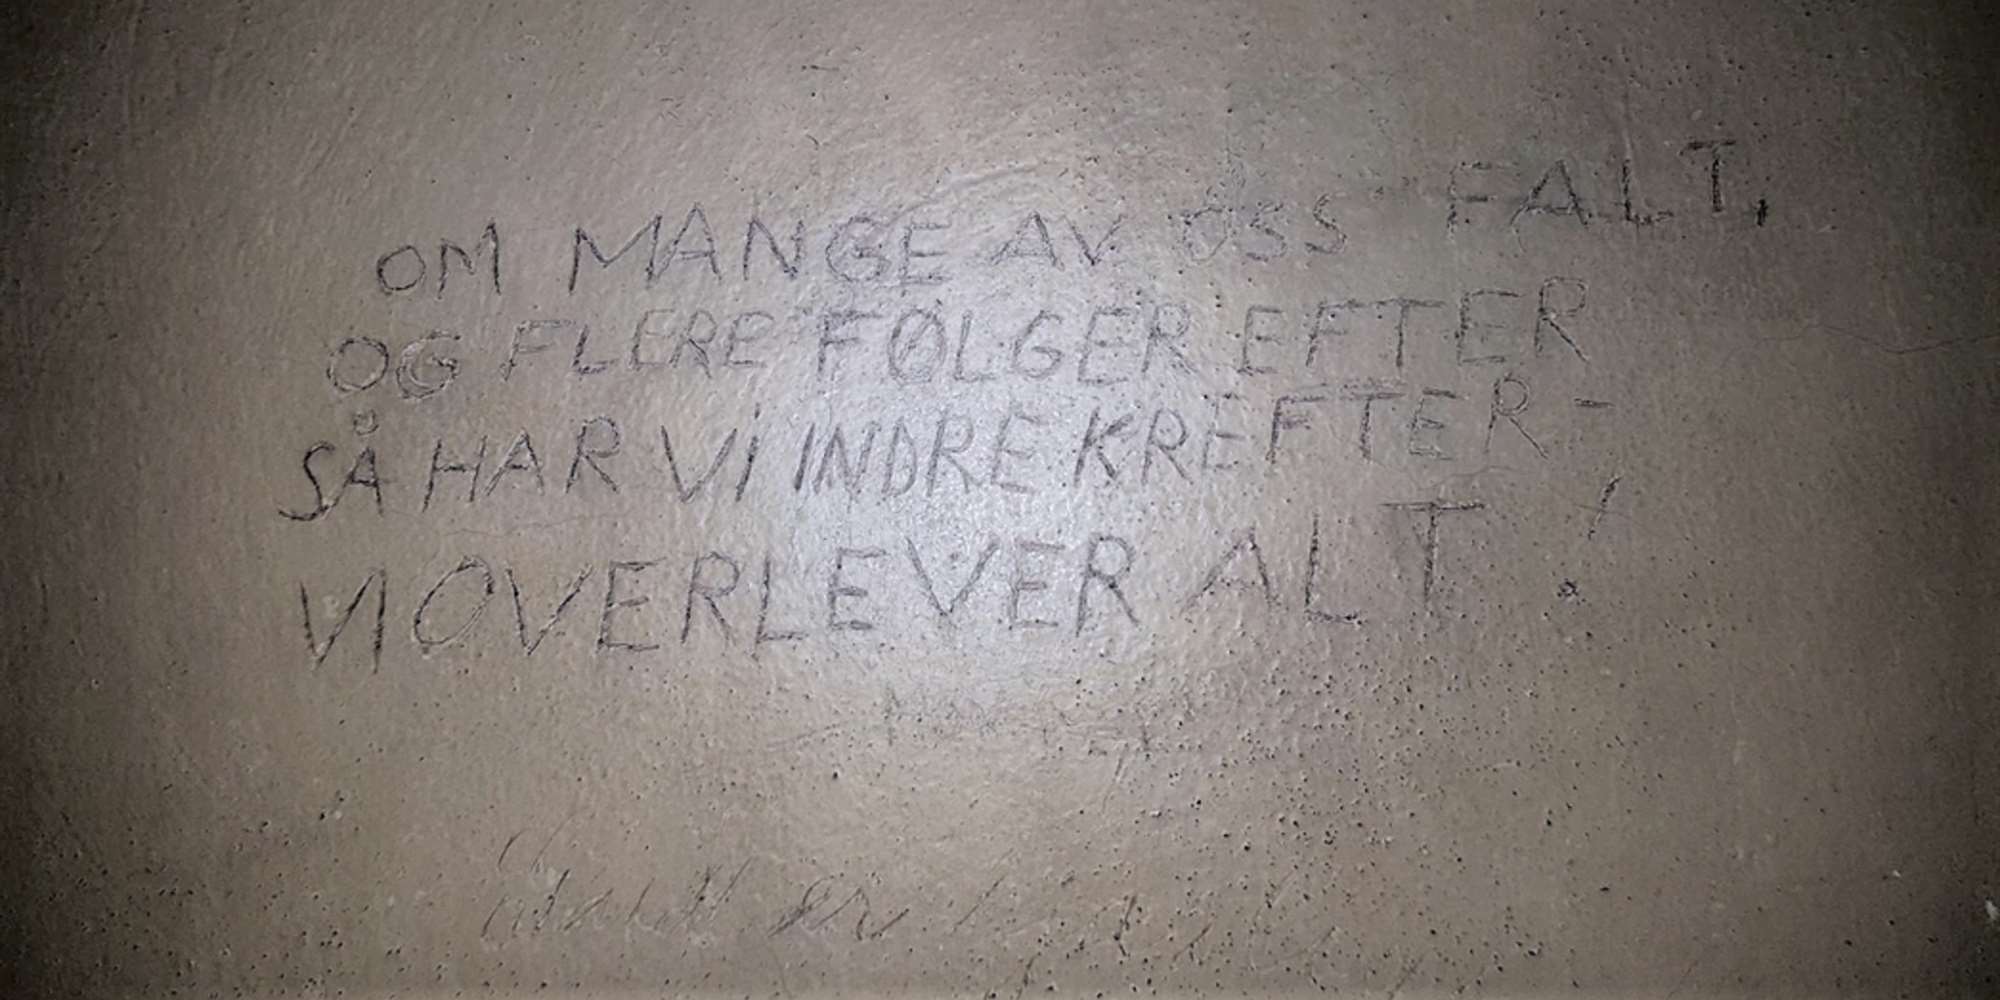 OM MANGE AV OSS FALT,
OG FLERE FØLGER EFTER
SÅ HAR VI INDRE KREFTER -
VI OVERLEVER ALT!